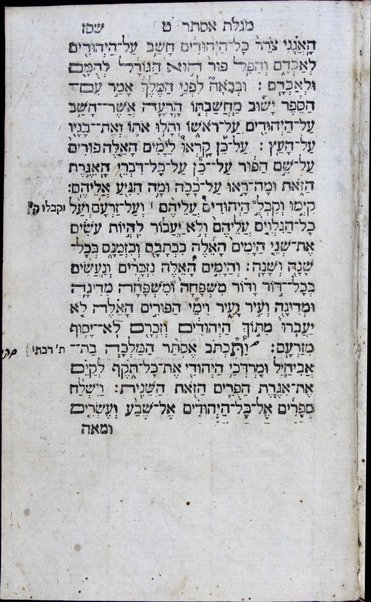 מגלת אסתר ט שסז
הָאֲגָגִי צֹרֵר כָּל־הַיְּהוּדִים חָשַׁב עַל־הַיְּהוּדִים
לְאַבְּדָם וְהִפִּל פּוּר הוּא הַגּוֹרָל לְהֻמָּם
וּלְאַבְּדָם׃ וּבְבֹאָהּ לִפְנֵי הַמֶּלֶךְ אָמַר עִם־
הַסֵּפֶר יָשׁוּב מַחֲשַׁבְתּוֹ הָרָעָה אֲשֶׁר־חָשַׁב
עַל־הַיְּהוּדִים עַל־רֹאשׁוֹ וְתָלוּ אֹתוֹ וְאֶת־בָּנָיו
עַל־הָעֵץ׃ עַל־כֵּן קָרְאוּ לַיָּמִים הָאֵלֶּה פוּרִים
עַל־שֵׁם הַפּוּר עַל־כֵּן עַל־כָּל־דִּבְרֵי הָאִגֶּרֶת
הַזֹּאת וּמָה־רָאוּ עַל־כָּכָה וּמָה הִגִּיעַ אֲלֵיהֶם׃
קִיְּמוּ וְקִבְּלֻ הַיְּהוּדִים עֲלֵיהֶם וְעַל־זַרְעָם וְעַל וקבלו ק׳
כָּל־הַנִּלְוִים עֲלֵיהֶם וְלֹא יַעֲבוֹר לִהְיוֹת עֹשִׂים
אֶת־שְׁנֵי הַיָּמִים הָאֵלֶּה כִּכְתָבָם וְכִזְמַנָּם בְּכָל־
שָׁנָה וְשָׁנָה׃ וְהַיָּמִים הָאֵלֶּה נִזְכָּרִים וְנַעֲשִׂים
בְּכָל־דּוֹר וָדוֹר מִשְׁפָּחָה וּמִשְׁפָּחָה מְדִינָה
וּמְדִינָה וְעִיר וָעִיר וִימֵי הַפּוּרִים הָאֵלֶּה לֹא
יַעַבְרוּ מִתּוֹךְ הַיְּהוּדִים וְזִכְרָם לֹא־יָסוּף
מִזַּרְעָם׃ וַתִּכְתֹּב אֶסְתֵּר הַמַּלְכָּה בַת־ ת׳ רבתי
אֲבִיחַיִל וּמָרְדֳּכַי הַיְּהוּדִי אֶת־כָּל־תֹּקֶף לְקַיֵּם
אֶת־אִגֶּרֶת הַפֻּרִים הַזֹּאת הַשֵּׁנִית׃ וַיִּשְׁלַח
סְפָרִים אֶל־כָּל־הַיְּהוּדִים אֶל־שֶׁבַע וְעֶשְׂרִים
ומאה